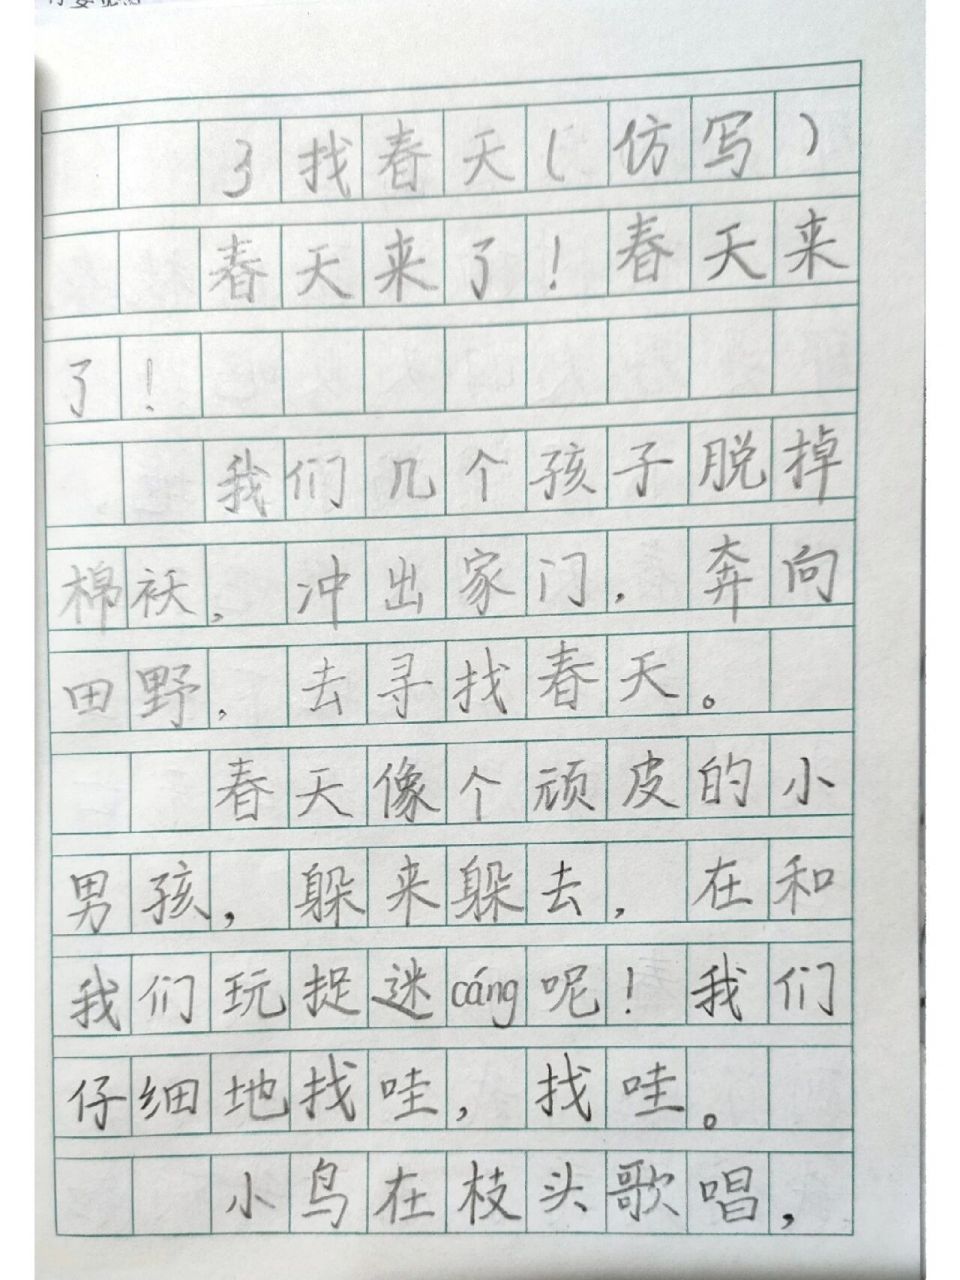 3找春天(仿写)
春天来了!春天来
了!
我们几个孩子脱掉
棉袄,冲出家门,奔向
田野,去寻找春天。
春天像个顽皮的小
男孩,躲来躲去,在和
我们玩捉迷cáng呢!我们
仔细地找哇,找哇。
小鸟在枝头歌唱,